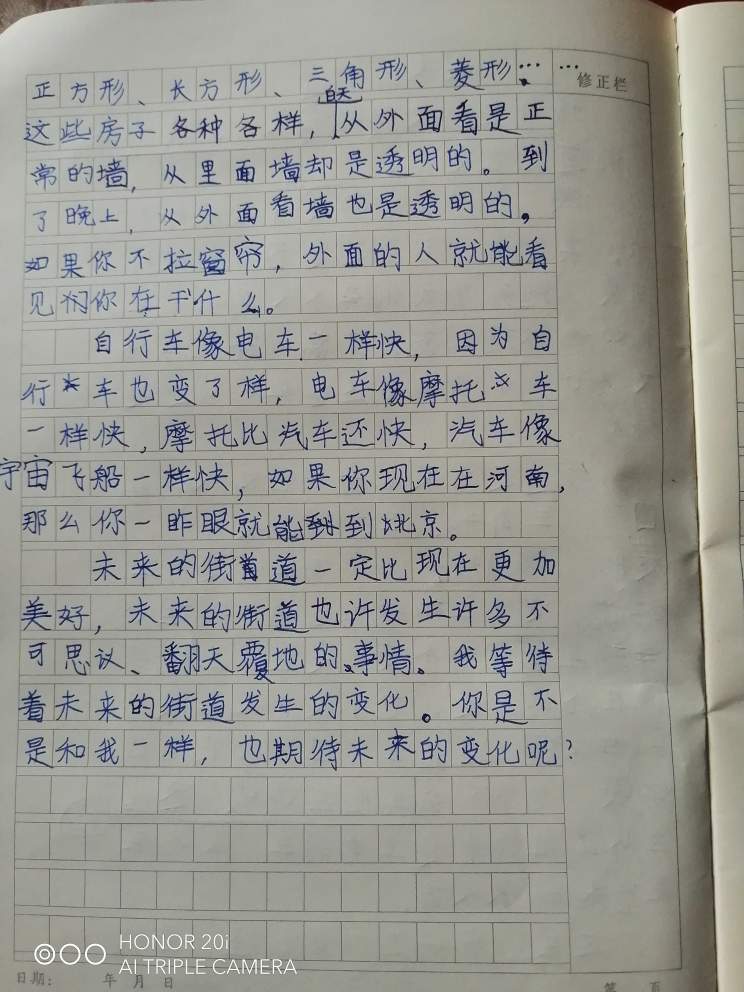 正方形、长方形、三角形、菱形……
修正栏
白天
这些房子各种各样，从外面看是正
常的墙，从里面墙却是透明的。到
了晚上，从外面看墙也是透明的。
如果你不拉窗帘，外面的人就能看
见你在干什么。
自行车像电车一样快，因为自
行车也变了样，电车像摩托车
一样快，摩托比汽车还快，汽车像
宇宙飞船一样快，如果你现在在河南，
那么你一昨眼就能到北京。
未来的街道一定比现在更加
美好，未来的街道也许发生许多不
可思议、翻天覆地的事情。我等待
着未来的街道发生的变化。你是不
是和我一样，也期待未来的变化呢？
HONOR 20i
AI TRIPLE CAMERA
日期： 年 月 日
第 页